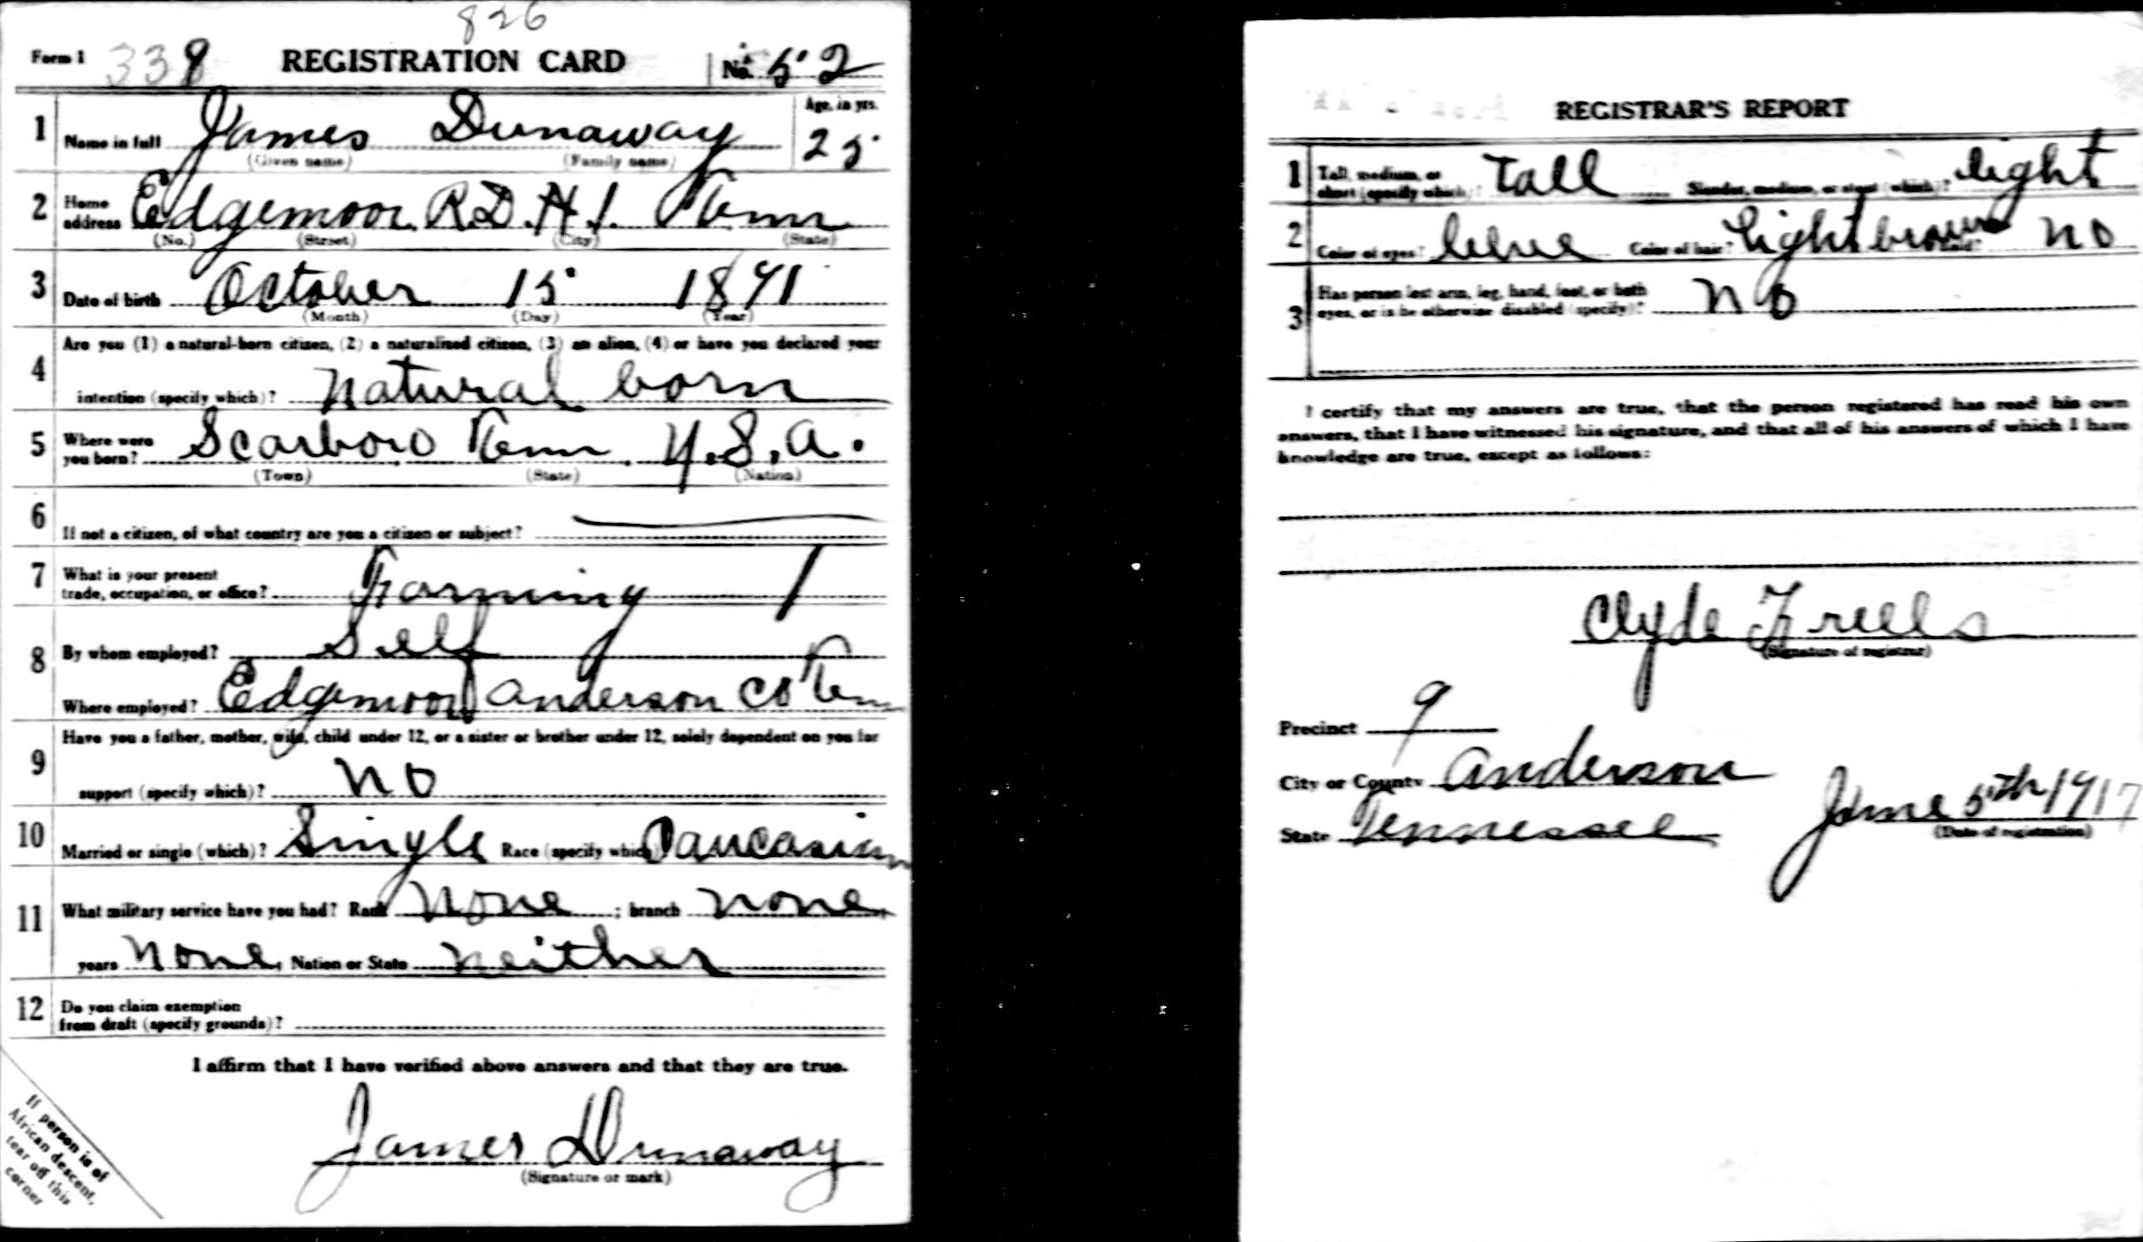 826
Form 1 339 REGISTRATION CARD No. 52
1 Name in full James Dunaway Age, in yrs. 25
(Given name) (Family name)
2 Home address Edgemoor R.D. #1. Tenn
(No.) (Street) (City) (State)
3 Date of birth October 15 1891
(Month) (Day) (Year)
4 Are you (1) a natural-born citizen, (2) a naturalized citizen, (3) an alien, (4) or have you declared your
intention (specify which)? Natural born
5 Where were you born? Scarboro Tenn. U.S.A.
(Town) (State) (Nation)
6 If not a citizen, of what country are you a citizen or subject?
7 What is your present
trade, occupation, or office? Farming
8 By whom employed? Self
Where employed? Edgemoor Anderson Co Tenn
9 Have you a father, mother, wife, child under 12, or a sister or brother under 12, solely dependent on you for
support (specify which)? No
10 Married or single (which)? Single Race (specify which) Caucasian
11 What military service have you had? Rank None; branch None
years None; Nation or State Neither
12 Do you claim exemption
from draft (specify grounds)?
I affirm that I have verified above answers and that they are true.
James Dunaway
(Signature or mark)
If person is of
African descent,
tear off this
corner
REGISTRAR'S REPORT
1 Tall, medium, or
short (specify which)? Tall Slender, medium, or stout (which)? light
2 Color of eyes? blue Color of hair? Light brown Bald? No
3 Has person lost arm, leg, hand, foot, or both
eyes, or is he otherwise disabled (specify)? No
I certify that my answers are true, that the person registered has read his own
answers, that I have witnessed his signature, and that all of his answers of which I have
knowledge are true, except as follows:
Clyde Frells
(Signature of registrar)
Precinct 9
City or County Anderson
State Tennessee June 5th 1917
(Date of registration)